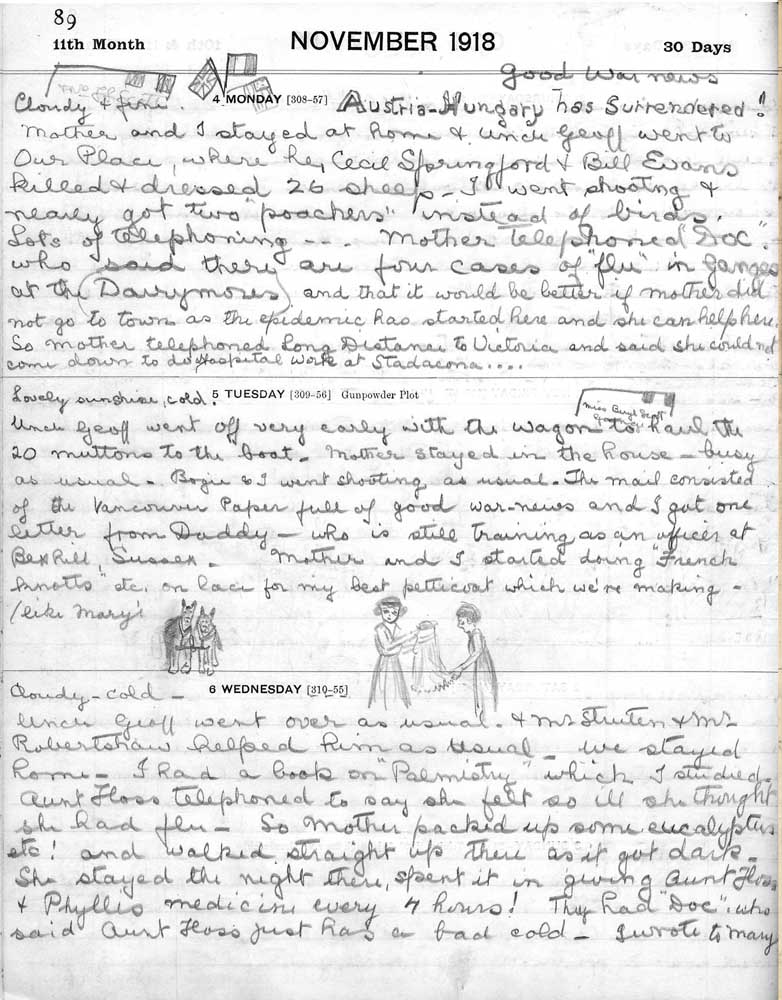 89
11th Month NOVEMBER 1918 30 Days
Good War news
Cloudy & fine. 4 MONDAY [308-57] Austria-Hungary has Surrendered!!
Mother and I stayed at home & Uncle Geoff went to
Our Place, where he, Cecil Springford & Bill Evans
killed & dressed 26 sheep - I went shooting &
nearly got two "poachers" instead of birds.
Lots of telephoning --- . Mother telephoned "Doc".
who said there are four cases of "flu" in Ganges
at the (Dawymores) and that it would be better if mother did
not go to town as the epidemic has started here and she can help here.
So mother telephoned Long Distance to Victoria and said she could not
come down to do Hospital work at Stadacona ....
Lovely sunshine, cold. 5 TUESDAY [309-56] Gunpowder Plot
Miss Beryl Scott
Uncle Geoff went off very early with the wagon to haul the
20 muttons to the boat. Mother stayed in the house - busy
as usual - Bogie & I went shooting as usual - The mail consisted
of the Vancouver Paper full of good war-news and I got one
letter from Daddy - who is still training as an officer at
Bexhill, Sussex. Mother and I started doing "French
knotts" etc. on lace for my best petticoat which we're making -
like Mary's
Cloudy - cold - 6 WEDNESDAY [310-55]
Uncle Geoff went over as usual. & Mr Struten & Mr
Robertshaw helped him as usual - we stayed
home - I had a book on "Palmistry" which I studied.
Aunt Floss telephoned to say she felt so ill she thought
she had flu - So Mother packed up some eucalyptus
etc! and walked straight up there as it got dark -
She stayed the night there, spent it in giving Aunt Floss
& Phyllis medicine every 4 hours! They had "Doc". who
said Aunt Floss just has a bad cold - I wrote to Mary